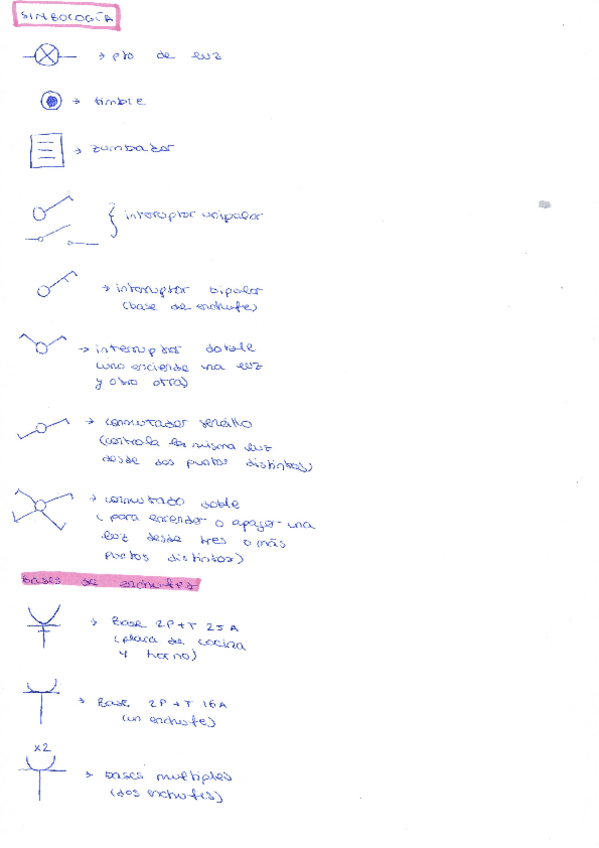 SIMBOLOGÍA
→ pto de luz
→ timbre
→ zumbador
} interruptor unipolar
→ interruptor bipolar
(base de enchufe)
→ interruptor doble
(uno enciende una luz
y otro otra)
→ conmutador sencillo
(controla la misma luz
desde dos puntos distintos)
→ conmutado doble
(para encender o apagar una
luz desde tres o más
puntos distintos)
Bases de enchufes
→ Base 2P+T 25A
(placa de cocina
y horno)
→ Base 2P+T 16A
(un enchufe)
x2
→ bases multiples
(dos enchufes)